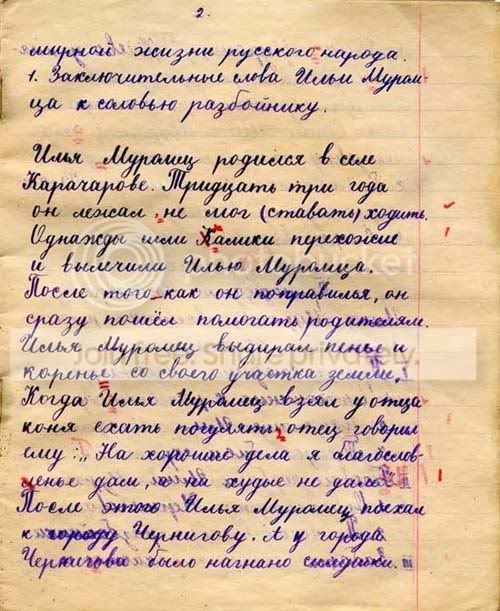 2.
мирной жизни русского народа.
1. Заключительные слова Ильи Муром-
ца к соловью разбойнику.
Илья Муромец родился в селе
Карачарове. Тридцать три года
он лежал, не мог (ставать) ходить.
Однажды шли Калики перехожие
и вылечили Илью Муромца.
После того как он поправилья, он
сразу пошёл помогать родителям.
Илья Муромец выдирал пенье и
коренье со своего участка земли.
Когда Илья Муромец взял у отца
коня ехать погулять, отец говорил
ему: „На хорошие дела я благослов-
ленье дам, а на худые не дало"
После этого Илья Муромец поехал
к городу Чернигову. А у города
Чернигова было нагнано